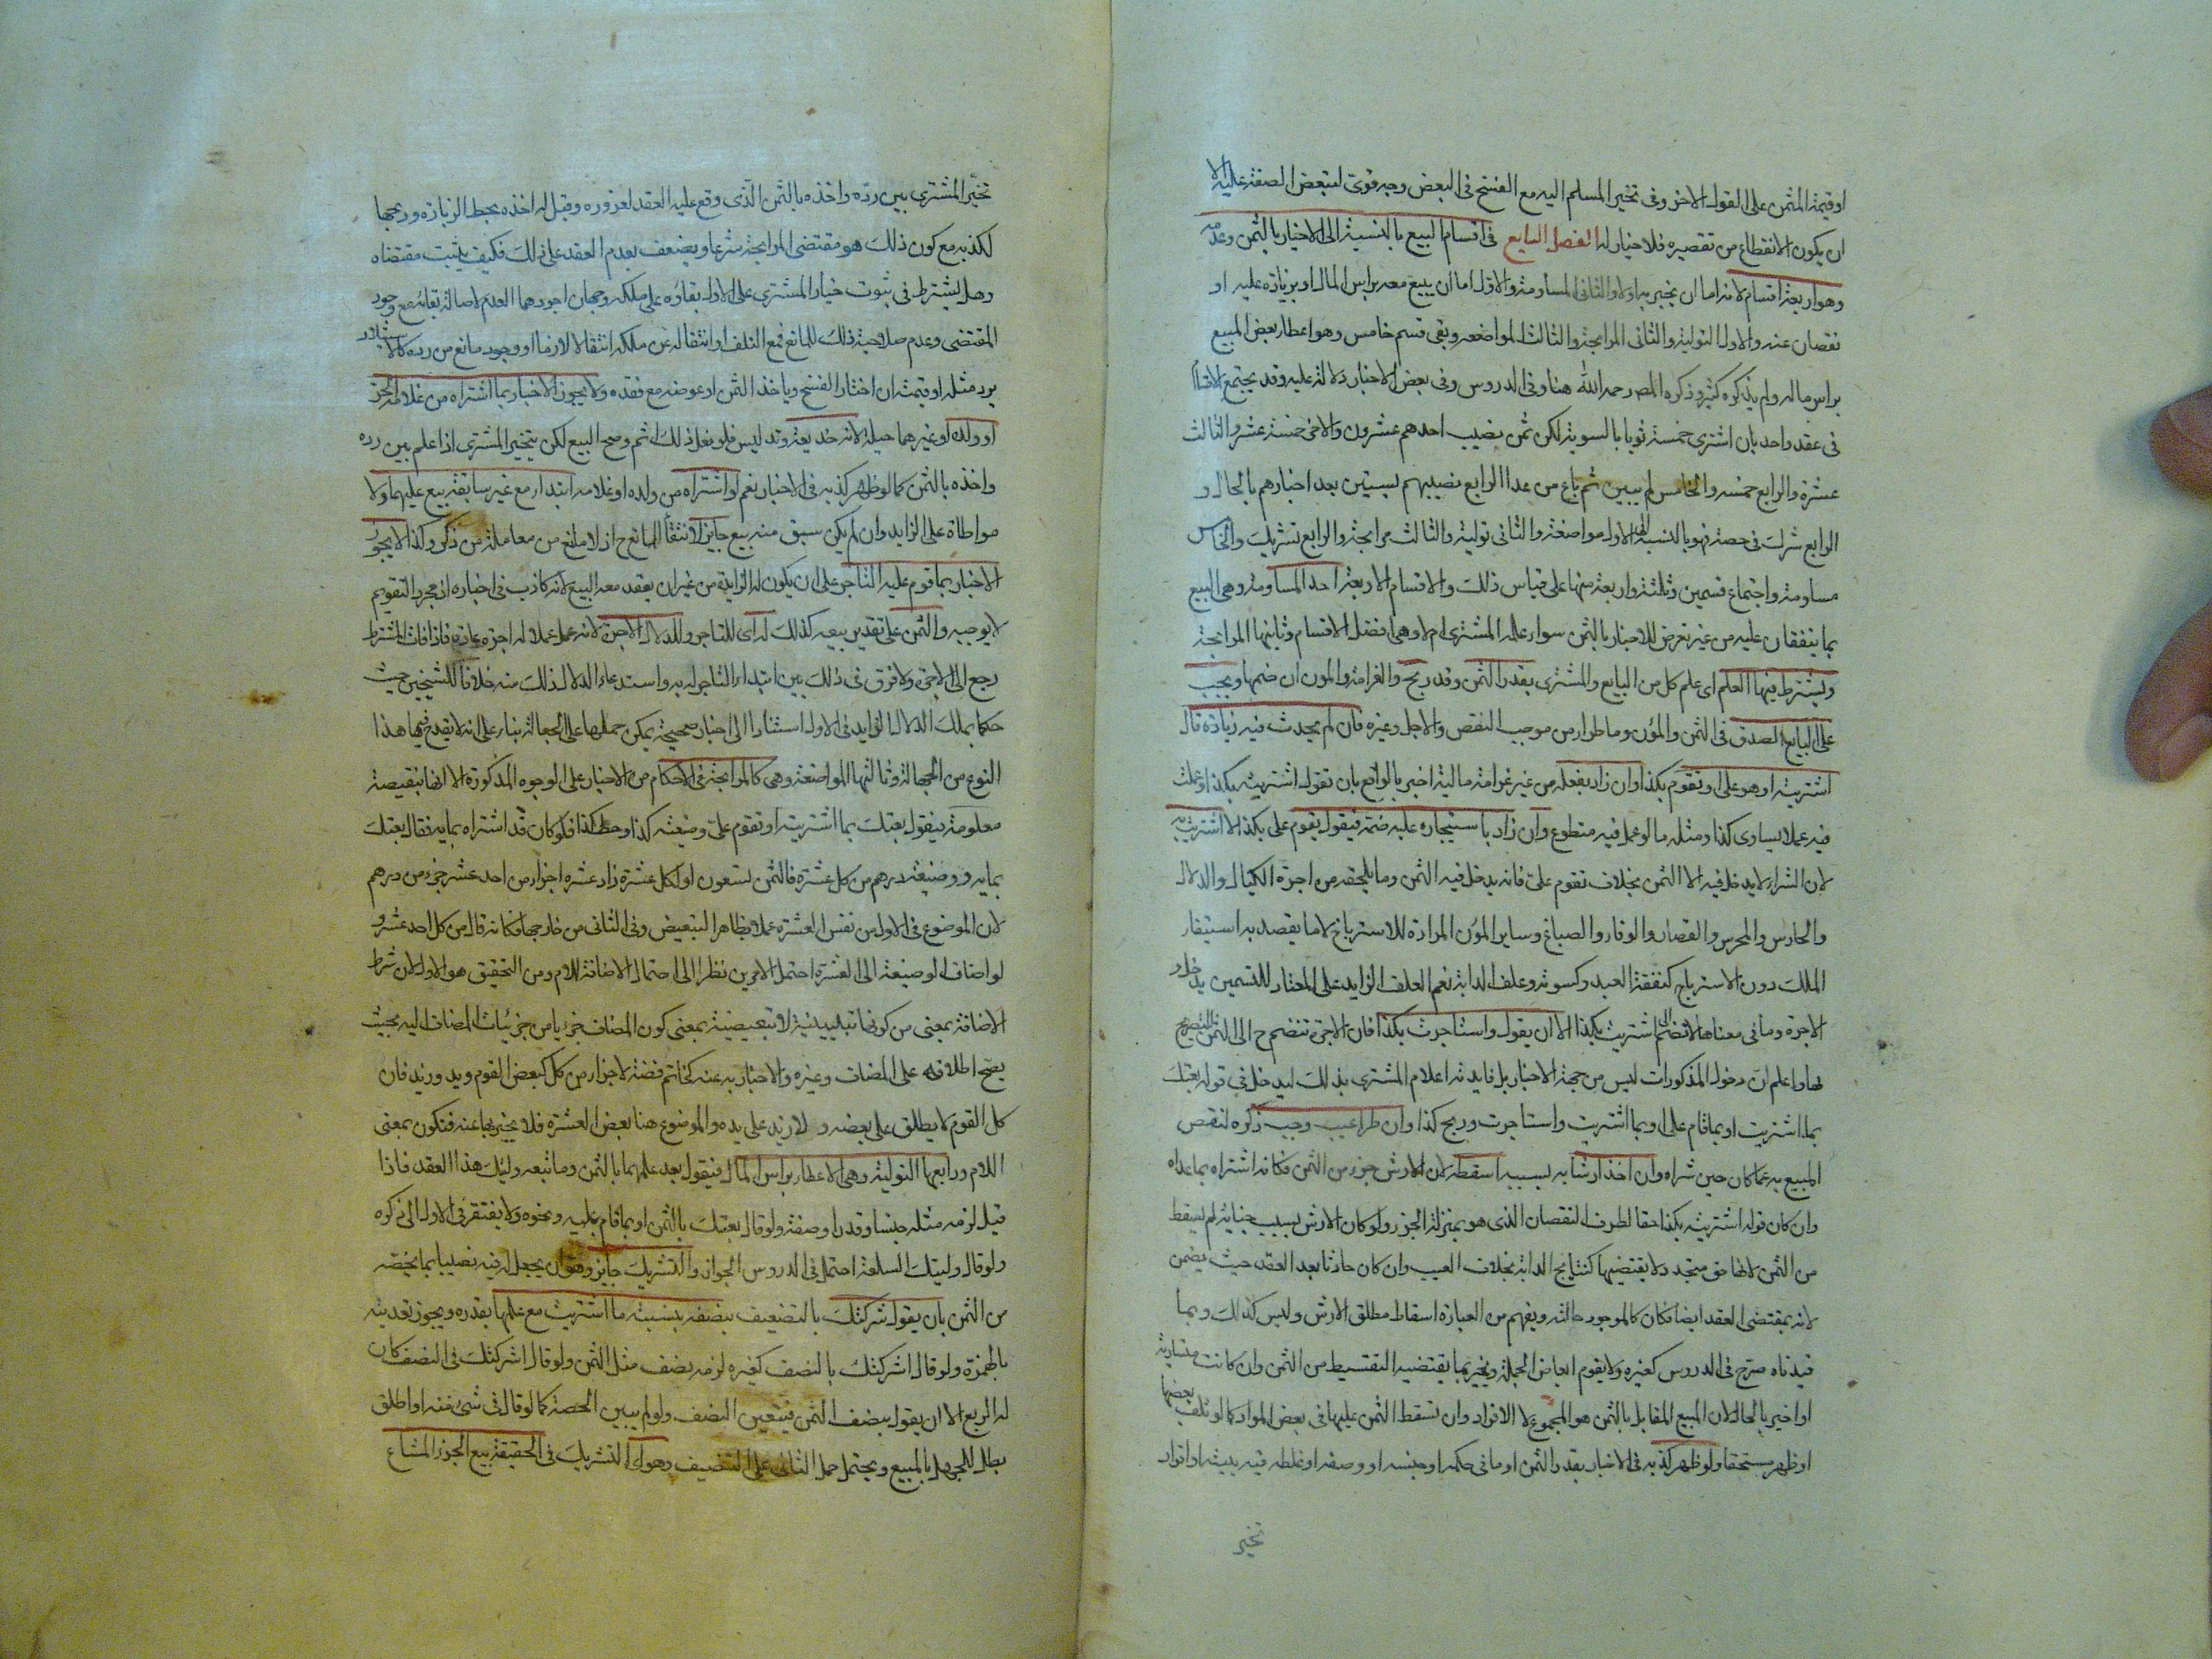 او قيمة المثمن على القول الاخر وفى تخير المسلم اليه مع الفسخ فى البعض وجه قوى لتبعض الصفقة عليه الا
ان يكون الانقطاع من تقصيره فلا خيار له الفصل السابع فى اقسام البيع بالنسبة الى الاخبار بالثمن وعدمه
وهو اربعة اقسام لانه اما ان يخبر به اولا والثانى المساومة والاول اما ان يبيع معه براس المال او بزيادة عليه او
نقصان عنه والاول التولية والثانى المرابحة والثالث المواضعة وبقى قسم خامس وهو اعطاء بعض المبيع
براس ماله ولم يذكره كثير وذكره المصر رحمه الله هنا وفى الدروس وفى بعض الاخبار دلالة عليه وقد يجتمع الاقسام
فى عقد واحد بان اشترى خمسة ثوبا بالسوية لكن ثمن نصيب احدهم عشرون والاخر خمسة عشر والثالث
عشرة والرابع خمسة والخامس لم يبين ثم باع من عدا الرابع نصيبهم بستين بعد اخبارهم بالحال و
الرابع شرك فى حصته فهو بالنسبة الى الاول مواضعة والثانى تولية والثالث مرابحة والرابع تشريك والخامس
مساومة واجتماع قسمين وثلثة واربعة منها على قياس ذلك والاقسام الاربعة احدها المساومة وهى البيع
بما يتفقان عليه من غير تعرض للاخبار بالثمن سواء علمه المشترى ام لا وهى افضل الاقسام وثانيها المرابحة
ويشترط فيها العلم اى علم كل من البايع والمشترى بقدر الثمن وقدر الربح والغرامة والمون ان ضمها ويجب
على البايع الصدق فى الثمن والمؤن وما طرا من موجب النقص والاجل وغيره فان لم يحدث فيه زيادة قال
اشتريته او هو على او تقوم بكذا وان زاد بفعله من غير غرامة مالية اخبر بالواقع بان تقول اشتريته بكذا وعملت
فيه عملا يساوى كذا ومثله ما لو عمل فيه متطوع وان زاد باستيجاره عليه ضمه فيقول تقوم على بكذا لا اشتريت به
لان الشراء لا يدخل فيه الا الثمن بخلاف تقوم على فانه يدخل فيه الثمن وما يلحقه من اجرة الكيال والدلال
والحارس والمحرس والقصار والرفاء والصباغ وساير المؤن المرادة للاسترباح لا ما يقصد به استبقاء
الملك دون الاسترباح كنفقة العبد وكسوته وعلف الدابة نعم العلف الزايد على المعتاد للتسمين يدخل و
الاجرة وما فى معناها لا تضم الى اشتريت بكذا الا ان يقول واستاجرت بكذا فان الاجرة تنضم ح الى الثمن للتصريح
بها واعلم ان دخول المذكورات ليس من جهة الاخبار بل فايدته اعلام المشترى بذلك ليدخل فى قوله بعتك
بما اشتريت او بما قام على او بما اشتريت واستاجرت وربح كذا وان طرا عيب وجب ذكره لنقص
المبيع به عما كان حين شراه وان اخذ ارشا به بسببه اسقطه لان الارش جزء من الثمن فكانه اشتراه بما عداه
وان كان قوله اشتريته بكذا حقا لطرو النقصان الذى هو بمنزلة الجزء ولو كان الارش بسبب جناية لم يسقط
من الثمن لانها حق متجدد لا يقتضيها كنتايج الدابة بخلاف العيب وان كان حادثا بعد العقد حيث يضمن
لانه بمقتضى العقد ايضا فكان كالموجود حالته ويفهم من العبارة اسقاط مطلق الارش وليس كذلك وبما
قيدناه صرح فى الدروس كغيره ولا يقوم ابعاض الجملة ويخبر بما يقتضيه التقسيط من الثمن وان كانت متساوية
او اخبر بالحال لان المبيع المقابل بالثمن هو المجموع لا الافراد وان تقسط الثمن عليها فى بعض الموارد كما لو تلف بعضها
او ظهر مستحقا ولو ظهر كذبه فى الاخبار بقدر الثمن او ما فى حكمه او جنسه او وصفه او غلطه فيه ببينة او اقرار
تخير
تخير المشترى بين رده واخذه بالثمن الذى وقع عليه العقد لغروره وقيل له اخذه بحط الزيادة وربحها
لكذبه مع كون ذلك هو مقتضى المرابحة شرعا ويضعف بعدم العقد على ذلك فكيف يثبت مقتضاه
وهل يشترط فى ثبوت خيار المشترى على الاول بقاؤه على ملكه وجهان اجودهما العدم لاصالة بقائه مع وجود
المقتضى وعدم صلاحية ذلك للمانع فمع التلف او انتقاله عن ملكه انتقالا لازما او وجود مانع من رده كالاستيلاد
يرد مثله او قيمته ان اختار الفسخ وياخذ الثمن او عوضه مع فقده ولا يجوز الاخبار بما اشتراه من غلامه الحر
او ولده او غيرهما حيلة لانه خديعة وتدليس فلو فعل ذلك اثم وصح البيع لكن يتخير المشترى اذا علم بين رده
واخذه بالثمن كما لو ظهر كذبه فى الاخبار نعم لو اشتراه من ولده او غلامه ابتداء مع غير سابقة بيع عليهما ولا
مواطاة على الزايد وان لم يكن سبق منه بيع جايز لانتفاء المانع ح اذ لا مانع من معاملة من ذكر وكذا لا يجوز
الاخبار بما قوم عليه التاجر على ان يكون له الزايد من غير ان يعقد معه البيع لانه كاذب فى اخباره اذ مجرد التقويم
لا يوجبه والثمن على تقدير بيعه كذلك له اى للتاجر وللدلال الاجرة لانه عمل عملا له اجرة عادة فاذا فات المشترط
رجع الى الاجرة ولا فرق فى ذلك بين ابتداء التاجر له به واستدعاء الدلال ذلك منه خلافا للشيخين حيث
حكما بملك الدلال الزايد فى الاول استنادا الى اخبار صحيحة يمكن حملها على الجعالة بناء على انه لا يقدح فيها هذا
النوع من الجهالة وثالثها المواضعة وهى كالمرابحة فى الاحكام من الاخبار على الوجوه المذكورة الا انها بنقيصة
معلومة فيقول بعتك بما اشتريته او تقوم على وضيعته كذا او حط كذا فلو كان قد اشتراه بمايه فقال بعتك
بمايه ووضيعة درهم من كل عشرة فالثمن تسعون او لكل عشرة زاد عشرة اجزاء من احد عشر جزء من درهم
لان الموضوع فى الاول من نفس العشرة عملا بظاهر التبعيض وفى الثانى من خارجها فكانه قال من كل احد عشر و
لو اضاف الوضيعة الى العشرة احتمل الامرين نظرا الى احتمال الاضافة للام ومن والتحقيق هو الاول لان شرط
الاضافة بمعنى من كونها تبيينية لا تبعيضية بمعنى كون المضاف جزءيا من جزئيات المضاف اليه بحيث
يصح اطلاقه على المضاف وغيره والاخبار به عنه كخاتم فضة لا جزء من كل كبعض القوم ويد وزيد فان
كل القوم لا يطلق على بعضه ولا زيد على يده والموضوع هنا بعض العشرة فلا يخبر بها عنه فتكون بمعنى
اللام ورابعها التولية وهى الاعطاء براس المال فيقول بعد علمهما بالثمن وما تبعه وليتك هذا العقد فاذا
قبل لزمه مثله جنسا وقدرا وصفة ولو قال بعتك بالثمن او بما قام عليه ونحوه ولا يفتقر فى الاول الى ذكره
ولو قال وليتك السلعة احتمل فى الدروس الجواز والتشريك جايز وهو ان يجعل له فيه نصيبا بما يخصه
من الثمن بان يقول شركتك بالتضعيف بنصفه بنسبة ما اشتريت مع علمهما بقدره ويجوز تعديته
بالهمزة ولو قال اشركتك بالنصف كغيره لزمه نصف مثل الثمن ولو قال اشركتك فى النصف كان
له الربع الا ان يقول بنصف الثمن فيتعين النصف ولو لم يبين الحصة كما لو قال فى شئ منه او اطلق
بطل للجهل بالمبيع ويحتمل حمل الثانى على التنصيف وهو اى التشريك فى الحقيقة بيع الجزء المشاع